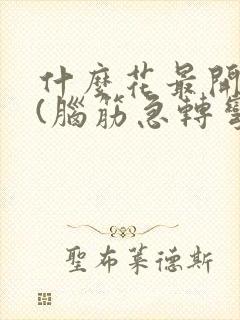 什麼花最開
(腦筋急轉彎
聖布萊德斯